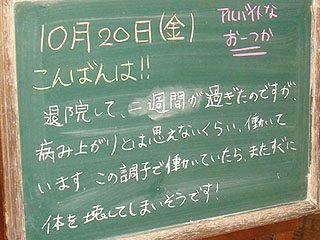 10月20日(金)
アルバイトな
おーつか
こんばんは!!
退院して、二週間が過ぎたのですが、
病み上がりとは思えないくらい、働いて
います。この調子で働いていたら、またすぐに
体を壊してしまいそうです!